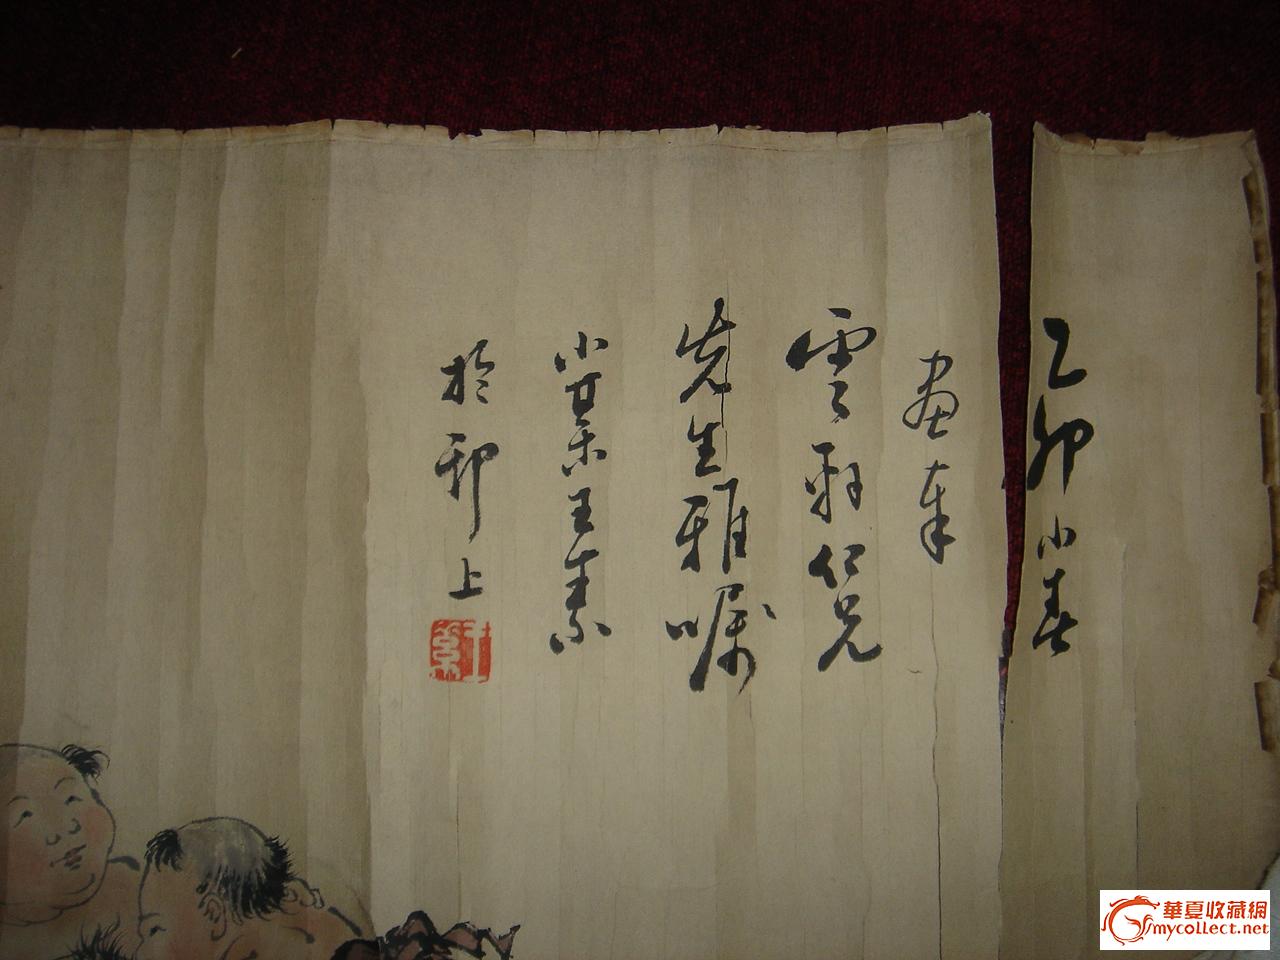 乙卯小春
畫奉
雲軒仁兄
先生雅囑
小某王素
於邗上
王素
華夏收藏網
mycollect.net